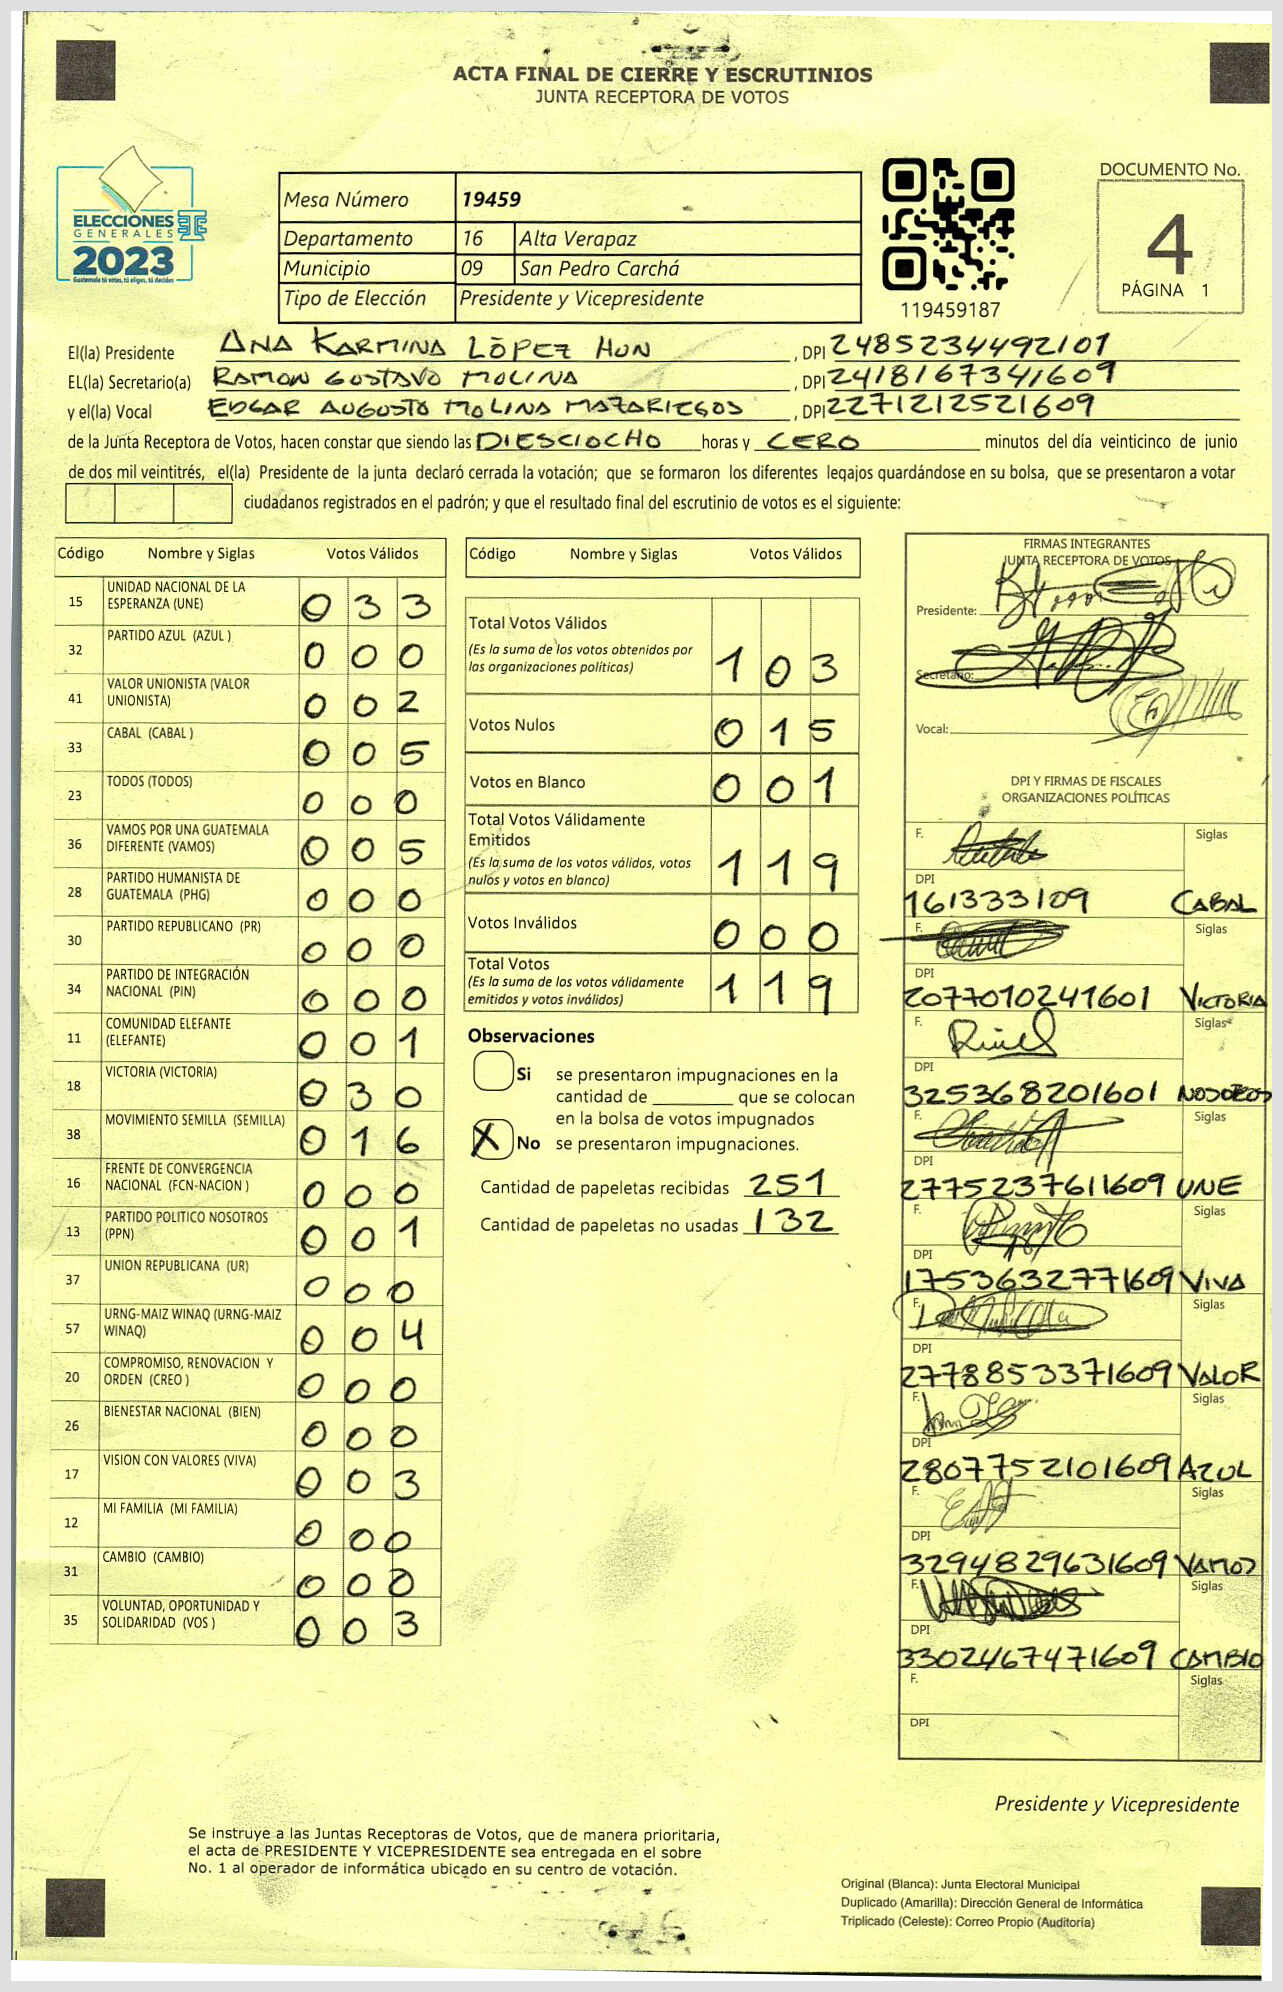 ACTA FINAL DE CIERRE Y ESCRUTINIOS
JUNTA RECEPTORA DE VOTOS
ELECCIONES
GENERALES
2023
Guatemala tú votas, tú eliges, tú decides
Mesa Número 19459
Departamento 16 Alta Verapaz
Municipio 09 San Pedro Carchá
Tipo de Elección Presidente y Vicepresidente
119459187
DOCUMENTO No.
4
PÁGINA 1
El(la) Presidente ANA KARMINA LÓPEZ HUN , DPI 2485234492101
EL(la) Secretario(a) RAMON GUSTAVO MOLINA , DPI 2418167341609
y el(la) Vocal EDGAR AUGUSTO MOLINA MAZARIEGOS , DPI 2271212521609
de la Junta Receptora de Votos, hacen constar que siendo las DIESCIOCHO horas y CERO minutos del día veinticinco de junio
de dos mil veintitrés, el(la) Presidente de la junta declaró cerrada la votación; que se formaron los diferentes legajos guardándose en su bolsa, que se presentaron a votar
ciudadanos registrados en el padrón; y que el resultado final del escrutinio de votos es el siguiente:
Código Nombre y Siglas Votos Válidos
15 UNIDAD NACIONAL DE LA ESPERANZA (UNE) 033
32 PARTIDO AZUL (AZUL ) 000
41 VALOR UNIONISTA (VALOR UNIONISTA) 002
33 CABAL (CABAL ) 005
23 TODOS (TODOS) 000
36 VAMOS POR UNA GUATEMALA DIFERENTE (VAMOS) 005
28 PARTIDO HUMANISTA DE GUATEMALA (PHG) 000
30 PARTIDO REPUBLICANO (PR) 000
34 PARTIDO DE INTEGRACIÓN NACIONAL (PIN) 000
11 COMUNIDAD ELEFANTE (ELEFANTE) 001
18 VICTORIA (VICTORIA) 030
38 MOVIMIENTO SEMILLA (SEMILLA) 016
16 FRENTE DE CONVERGENCIA NACIONAL (FCN-NACION ) 000
13 PARTIDO POLITICO NOSOTROS (PPN) 001
37 UNION REPUBLICANA (UR) 000
57 URNG-MAIZ WINAQ (URNG-MAIZ WINAQ) 004
20 COMPROMISO, RENOVACION Y ORDEN (CREO ) 000
26 BIENESTAR NACIONAL (BIEN) 000
17 VISION CON VALORES (VIVA) 003
12 MI FAMILIA (MI FAMILIA) 000
31 CAMBIO (CAMBIO) 000
35 VOLUNTAD, OPORTUNIDAD Y SOLIDARIDAD (VOS ) 003
Código Nombre y Siglas Votos Válidos
Total Votos Válidos
(Es la suma de los votos obtenidos por
las organizaciones políticas) 103
Votos Nulos 015
Votos en Blanco 001
Total Votos Válidamente
Emitidos
(Es la suma de los votos válidos, votos
nulos y votos en blanco) 119
Votos Inválidos 000
Total Votos
(Es la suma de los votos válidamente
emitidos y votos inválidos) 119
Observaciones
Si se presentaron impugnaciones en la
cantidad de ________ que se colocan
en la bolsa de votos impugnados
X No se presentaron impugnaciones.
Cantidad de papeletas recibidas 251
Cantidad de papeletas no usadas 132
FIRMAS INTEGRANTES
JUNTA RECEPTORA DE VOTOS
Presidente:
Secretario:
Vocal:
DPI Y FIRMAS DE FISCALES
ORGANIZACIONES POLÍTICAS
F. Siglas
DPI
161333109 CABAL
F. Siglas
DPI
2077010241601 VICTORIA
F. Siglas
DPI
325368201601 NOSOTROS
F. Siglas
DPI
2775237611609 UNE
F. Siglas
DPI
1753632771609 VIVA
F. Siglas
DPI
2778853371609 VALOR
F. Siglas
DPI
2807752101609 AZUL
F. Siglas
DPI
3294829631609 VAMOS
F. Siglas
DPI
3302467471609 CAMBIO
F. Siglas
DPI
Presidente y Vicepresidente
Se instruye a las Juntas Receptoras de Votos, que de manera prioritaria,
el acta de PRESIDENTE Y VICEPRESIDENTE sea entregada en el sobre
No. 1 al operador de informática ubicado en su centro de votación.
Original (Blanca): Junta Electoral Municipal
Duplicado (Amarilla): Dirección General de Informática
Triplicado (Celeste): Correo Propio (Auditoría)